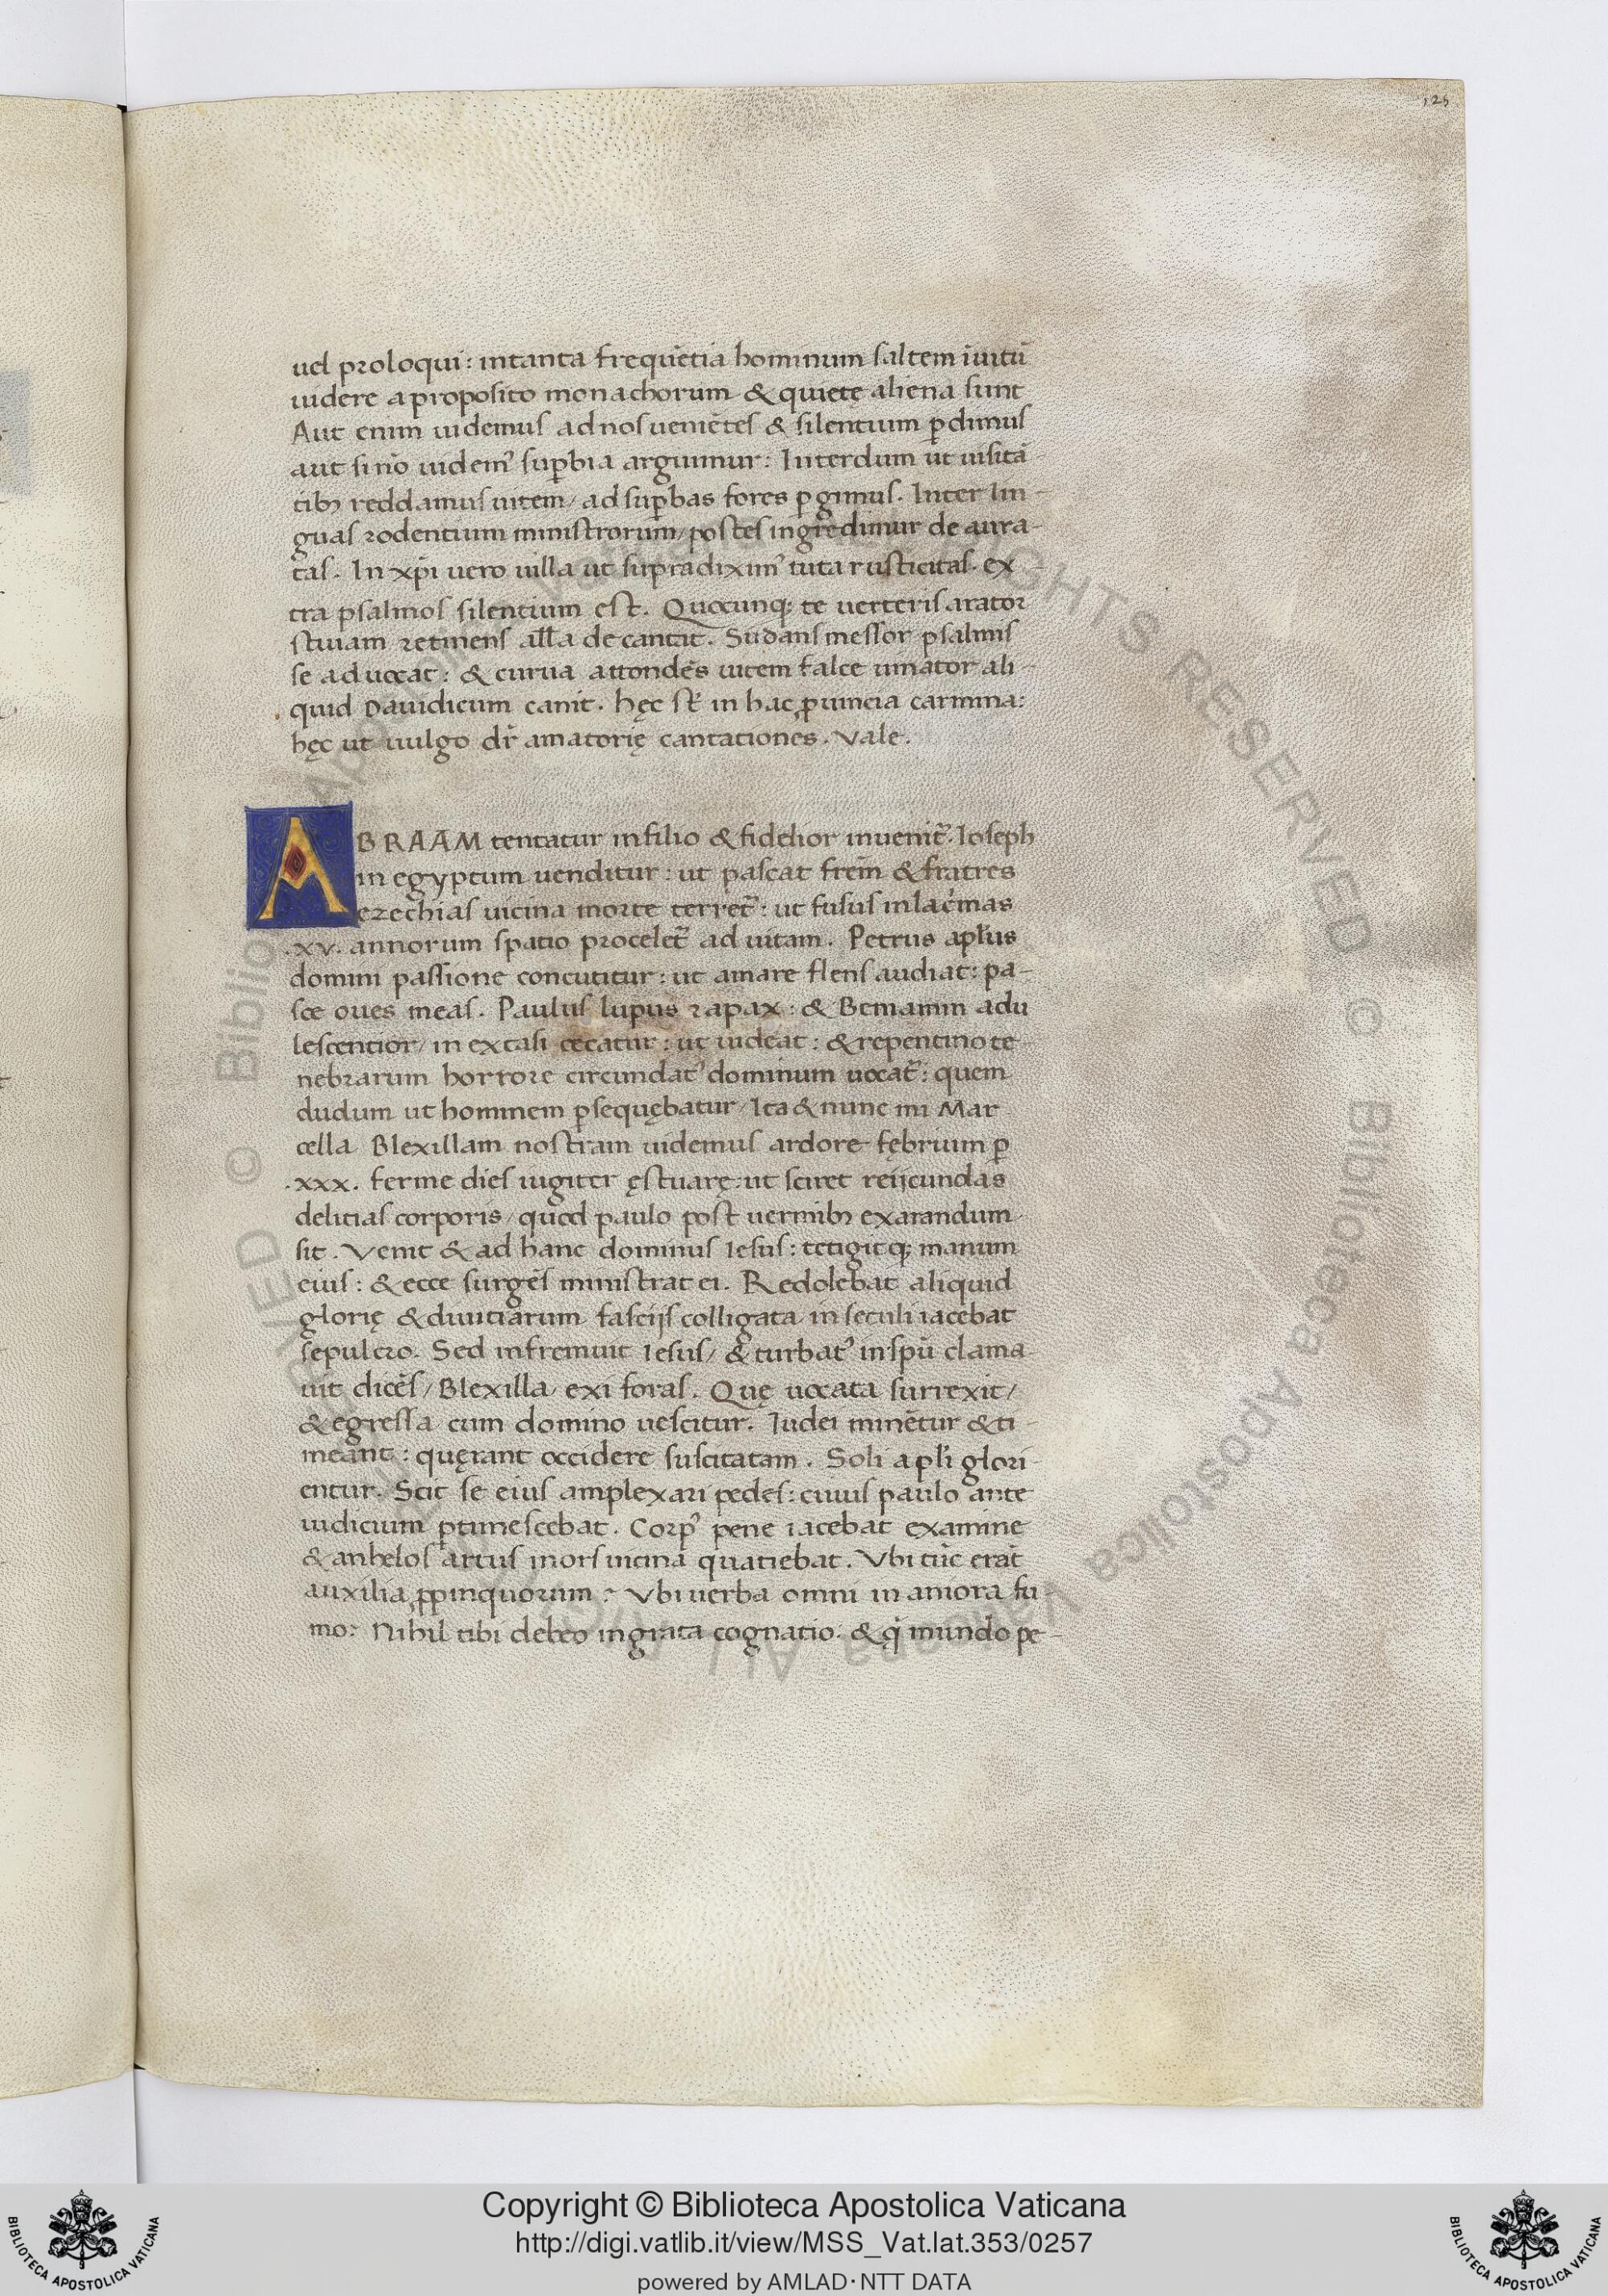 125
uel proloqui: intanta frequẽtia hominum saltem ĩuitũ
uidere a proposito monachorum & quietę aliena sunt
Aut enim uidemus ad nos ueniẽtes & silentium ꝑdimus
aut si nõ uidem᾽ suꝑbia arguimur: Interdum ut uisitã-
tibꝫ reddamus uicem/ ad suꝑbas fores ꝑgimus. Inter lin-
guas rodentium ministrorum/ postes ingredimur de aura-
tas. In xp̃i uero uilla ut supradixim᾽ tuta rusticitas. ex-
tra psalmos silentium est. Quocunqꝫ te uerteris arator
stiuam retinens all̃a de cantit. Sudans messor psalmis
se aduocat: & curua attondẽs uitem falce uinator ali-
quid Dauidicum canit. hęc st̃ in hac ꝓuincia carmina:
hęc ut uulgo dr̃ amatorię cantationes. Vale.
ABRAAM tentatur in filio & fidelior inuenit̃. Ioseph
in egyptum uenditur: ut pascat frẽm & fratres
ezechias uicina morte terret̃: ut fusus in lac̃mas
.xv. annorum spatio procelet̃ ad uitam. Petrus apl̃us
domini passione concutitur: ut amare flens audiat: pa-
sce oues meas. Paulus lupus rapax: & Beniamin adu
lescentior/ in extasi cecatur: ut uideat: & repentino te-
nebrarum horrore circundat᾽ dominum uocat̃: quem
dudum ut hominem ꝑsequębatur/ Ita & nunc mi Mar
cella Blexillam nostram uidemus ardore fębrium ꝑ
.xxx. ferme dies iugiter ęstuarę: ut sciret reijcundas
delitias corporis/ quod paulo post uermibꝫ exarandum
sit. Venit & ad hanc dominus Iesus: tetigitqꝫ manum
eius: & ecce surgẽs ministrat ei. Redolebat aliquid
glorię & diuitiarum fascijs colligata in seculi iacebat
sepulcro. Sed infremuit Iesus/ & turbat᾽ in sp̃u clama-
uit dicẽs/ Blexilla/ exi foras. Quę uocata surrexit/
& egressa cum domino uescitur. Iudei minẽtur & ti-
meant: quęrant occidere suscitatam. Soli apl̃i glori-
entur. Scit se eius amplexari pedes: cuius paulo ante
iudicium ꝑtimescebat. Corp᾽ pene iacebat examine
& anhelos artus mors uicina quatiebat. Vbi tũc erãt
auxilia ꝓpinquorum? Vbi uerba omni in aniora fu
mo? Nihil tibi debeo ingrata cognatio. & q̃ mundo pe-
Copyright © Biblioteca Apostolica Vaticana
http://digi.vatlib.it/view/MSS_Vat.lat.353/0257
powered by AMLAD·NTT DATA